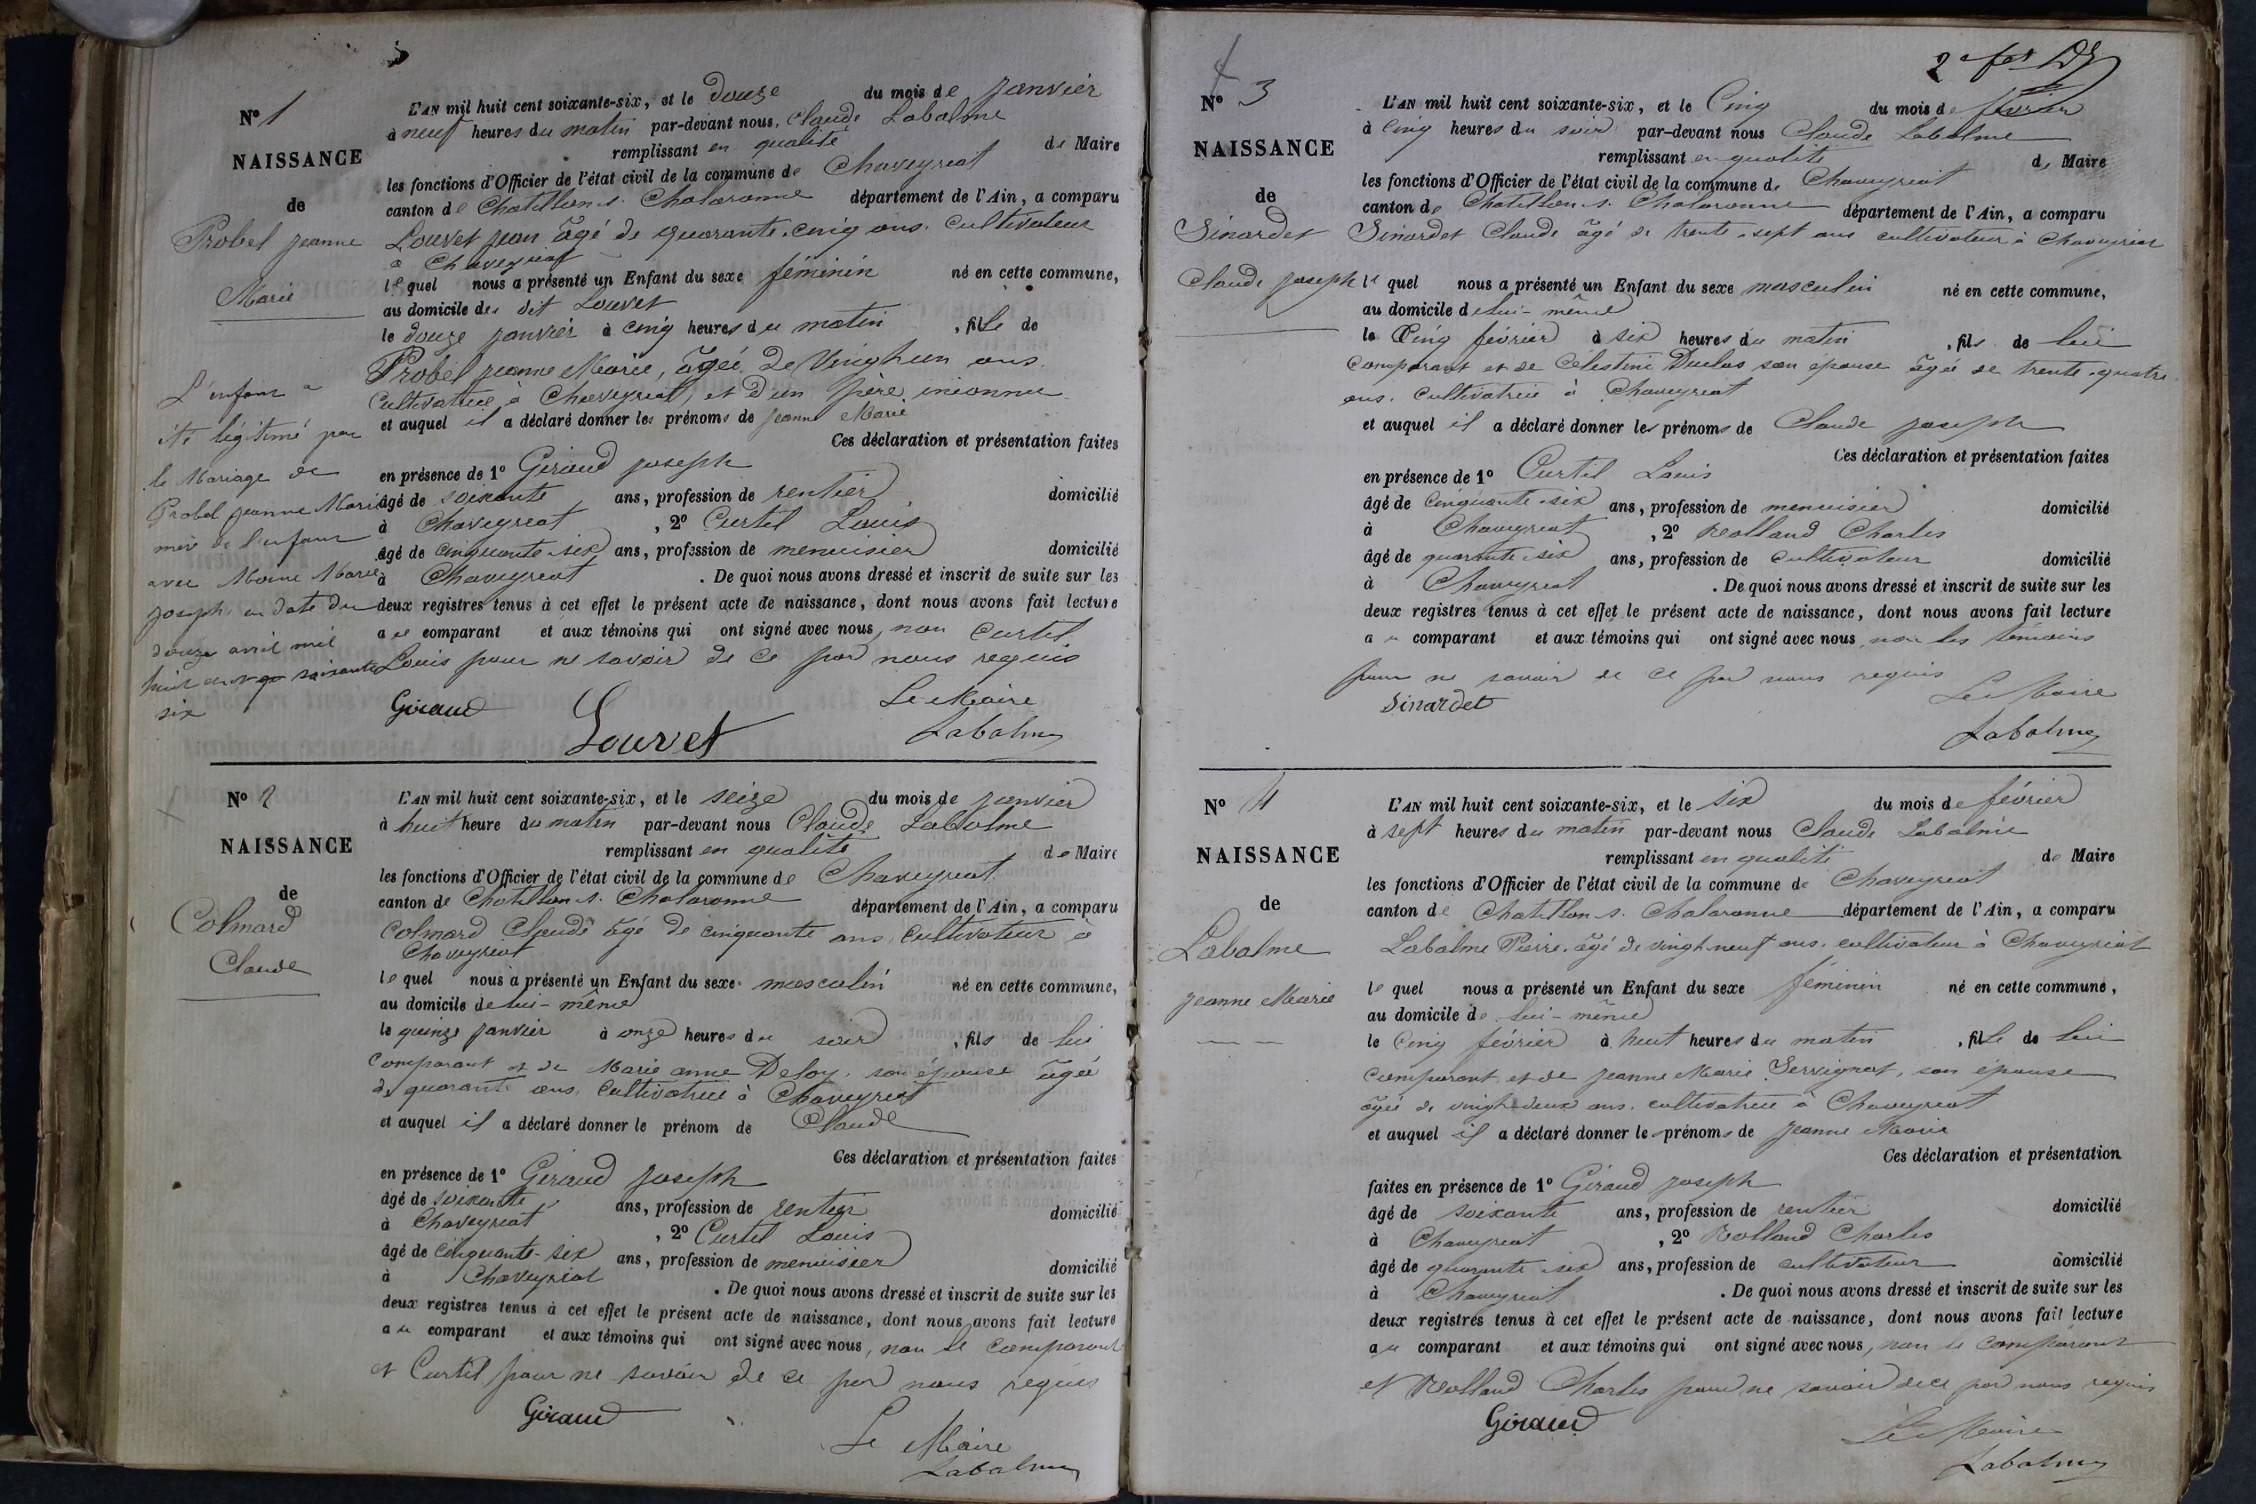 Nº 1
NAISSANCE
de
Probel jeanne
Marie
L'enfant a
été légitimé par
le Mariage de
Probel jeanne Marie
mère de l'enfant
avec Moine Marie
joseph en date du
douze avril mil
huit cent soixante
six
L'AN mil huit cent soixante-six, et le douze du mois de janvier
à neuf heures du matin par-devant nous, Claude Labalme
remplissant en qualité de Maire
les fonctions d'Officier de l'état civil de la commune de Chaveyriat
canton de Chatillon s. Chalaronne département de l'Ain, a comparu
Louvet jean âgé de quarante-cinq ans. cultivateur
à Chaveyriat
lequel nous a présenté un Enfant du sexe féminin né en cette commune,
au domicile de dit Louvet
le douze janvier à cinq heures du matin , fille de
Probel jeanne Marie, âgée de Vingt un ans
Cultivatrice à Chaveyriat, et d'un père inconnu
et auquel il a déclaré donner les prénoms de jeanne Marie
Ces déclaration et présentation faites
en présence de 1º Giraud joseph
âgé de soixante ans, profession de rentier domicilié
à Chaveyriat , 2º Curtil Louis
âgé de cinquante-six ans, profession de menuisier domicilié
à Chaveyriat . De quoi nous avons dressé et inscrit de suite sur les
deux registres tenus à cet effet le présent acte de naissance, dont nous avons fait lecture
au comparant et aux témoins qui ont signé avec nous, non Curtil
Louis pour ne savoir de ce par nous requis
Giraud Louvet Le Maire
Labalme
Nº 2
NAISSANCE
de
Colmard
Claude
L'AN mil huit cent soixante-six, et le seize du mois de janvier
à huit heure du matin par-devant nous Claude Labalme
remplissant en qualité de Maire
les fonctions d'Officier de l'état civil de la commune de Chaveyriat
canton de Chatillon s. Chalaronne département de l'Ain, a comparu
Colmard Claude âgé de cinquante ans, cultivateur à
Chaveyriat
lequel nous a présenté un Enfant du sexe masculin né en cette commune,
au domicile de lui-même
le quinze janvier à onze heures du soir , fils de lui
comparant et de Marie anne Deloy, son épouse âgée
de quarante ans, Cultivatrice à Chaveyriat
et auquel il a déclaré donner le prénom de Claude
Ces déclaration et présentation faites
en présence de 1º Giraud joseph
âgé de soixante ans, profession de rentier domicilié
à Chaveyriat , 2º Curtil Louis
âgé de cinquante-six ans, profession de menuisier domicilié
à Chaveyriat . De quoi nous avons dressé et inscrit de suite sur les
deux registres tenus à cet effet le présent acte de naissance, dont nous avons fait lecture
au comparant et aux témoins qui ont signé avec nous, non le comparant
et Curtil pour ne savoir de ce par nous requis
Giraud Le Maire
Labalme
2e
Nº 3
NAISSANCE
de
Sinardet
Claude joseph
L'AN mil huit cent soixante-six, et le Cinq du mois de février
à cinq heures du soir par-devant nous Claude Labalme
remplissant en qualité de Maire
les fonctions d'Officier de l'état civil de la commune de Chaveyriat
canton de Chatillon s. Chalaronne département de l'Ain, a comparu
Sinardet Claude âgé de trente-sept ans cultivateur à Chaveyriat
lequel nous a présenté un Enfant du sexe masculin né en cette commune,
au domicile de lui-même
le Cinq février à six heures du matin , fils de lui
comparant et de Célestine Duclos son épouse âgée de trente-quatre
ans. cultivatrice à Chaveyriat
et auquel il a déclaré donner les prénoms de Claude joseph
Ces déclaration et présentation faites
en présence de 1º Curtil Louis
âgé de cinquante-six ans, profession de menuisier domicilié
à Chaveyriat , 2º Rolland Charles
âgé de quarante-six ans, profession de cultivateur domicilié
à Chaveyriat . De quoi nous avons dressé et inscrit de suite sur les
deux registres tenus à cet effet le présent acte de naissance, dont nous avons fait lecture
au comparant et aux témoins qui ont signé avec nous, non les témoins
pour ne savoir de ce par nous requis
Sinardet Le Maire
Labalme
Nº 4
NAISSANCE
de
Labalme
jeanne Marie
L'AN mil huit cent soixante-six, et le six du mois de février
à sept heures du matin par-devant nous Claude Labalme
remplissant en qualité de Maire
les fonctions d'Officier de l'état civil de la commune de Chaveyriat
canton de Chatillon s. Chalaronne département de l'Ain, a comparu
Labalme Pierre, âgé de vingt-neuf ans, cultivateur à Chaveyriat
lequel nous a présenté un Enfant du sexe féminin né en cette commune,
au domicile de lui-même
le Cinq février à huit heures du matin , fille de lui
comparant et de jeanne Marie Servignat, son épouse
âgée de vingt-deux ans. cultivatrice à Chaveyriat
et auquel il a déclaré donner les prénoms de jeanne Marie
Ces déclaration et présentation
faites en présence de 1º Giraud joseph
âgé de soixante ans, profession de rentier domicilié
à Chaveyriat , 2º Rolland Charles
âgé de quarante-six ans, profession de cultivateur domicilié
à Chaveyriat . De quoi nous avons dressé et inscrit de suite sur les
deux registres tenus à cet effet le présent acte de naissance, dont nous avons fait lecture
au comparant et aux témoins qui ont signé avec nous, non le comparant
et Rolland Charles pour ne savoir de ce par nous requis
Giraud Le Maire
Labalme